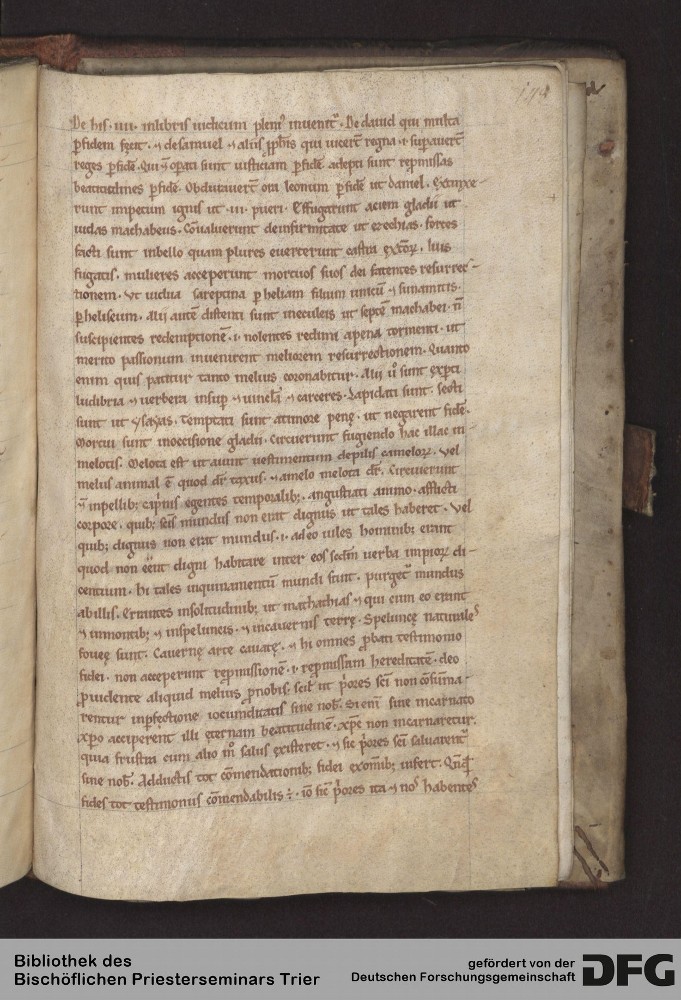 174
De his .iiii. in libris iudicum pleni' inuenit̄. De dauid qui multa
ꝑfidem fecit. ⁊ de samuel ⁊ aliis ꝓph̄is qui uicer̄t regna .i. suꝑauer̄t
reges ꝑfidē. Qui ⁊ oꝑati sunt iusticiam ꝑfidē adepti sunt repromissas
beatitudines ꝑfidē. Obdurauer̄t ora leonum ꝑfidē ut daniel. Extinxe-
runt impetum ignis ut .iii. pueri. Effugarunt aciem gladii ut
iudas machabeus. Cōualuerunt de infirmitate ut ezechias. fortes
facti sunt in bello quam plures euerterunt castra extōꝝ. huis
fugatis. mulieres acceperunt mortuos suos dei fatentes resurrec-
tionem. Vt uidua sareptina ꝑ heliam filium unicū ⁊ sunamitis.
ꝑ heliseum. Alii autē distenti sunt in eculeis ut septē machabei. n̄
suscipientes redemptionē .i. nolentes redimi a pena tormenti. ut
merito passionum inuenirent meliorem resurrectionem. Quanto
enim quis patitur tanto melius coronabitur. Alii u̓ sunt exꝑti
ludibria ⁊ uerbera insuꝑ ⁊ uincla ⁊ carceres. Lapidati sunt. secti
sunt ut ysayas. Temptati sunt a timore penę. ut negarent fidē.
Mortui sunt in occisione gladii. Circuierunt fugiendo hac illac in
melotis. Melota est ut aiunt uestimentum de pilis camelorꝝ. Vel
melus animal ē quod dr̄ taxus. ⁊ a melo melota dr̄. Circuierunt
⁊ in pellib; cap̓nis egentes temporalib;. angustiati animo. afflicti
corpore. quib; sc̄is mundus non erat dignus ut tales haberet. Vel
quib; dignus non erat mundus .i. adeo uiles hominib; erant
quod non eēnt digni habitare inter eos scdm̄ uerba impiorꝝ di-
centium. hi tales inquinamentū mundi sunt. purget̄ mundus
ab illis. Errantes in solitudinib; ut mathathias ⁊ qui cum eo erant
⁊ in montib; ⁊ in speluncis. ⁊ in cauernis terrę. Speluncę naturales
foueę sunt. Cauernę arte cauatę. ⁊ hi omnes ꝓbati testimonio
fidei. non acceperunt repromissionē .i. repromissam hereditatē. deo
ꝓuidente aliquid melius ꝓ nobis. scil̄ ut p̓ores sc̄i non cōsūma-
rentur in ꝑfectione iocunditatis sine nob̄. Si eni̅ sine incarnato
xp̄o acciperent illi ęternam beatitudinē. xp̄c non incarnaretur.
quia frustra cum alio m̊ salus existeret. ⁊ sic p̓ores sc̄i saluarent̄
sine nob̄. Adductis tot cōmendationib; fidei ex om̄ib; infert.
fides tot testimoniis cōmendabilis ÷. iō sic̄ p̓ores ita ⁊ nos habentes
Bibliothek des
Bischöflichen Priesterseminars Trier
gefördert von der
Deutschen Forschungsgemeinschaft
DFG